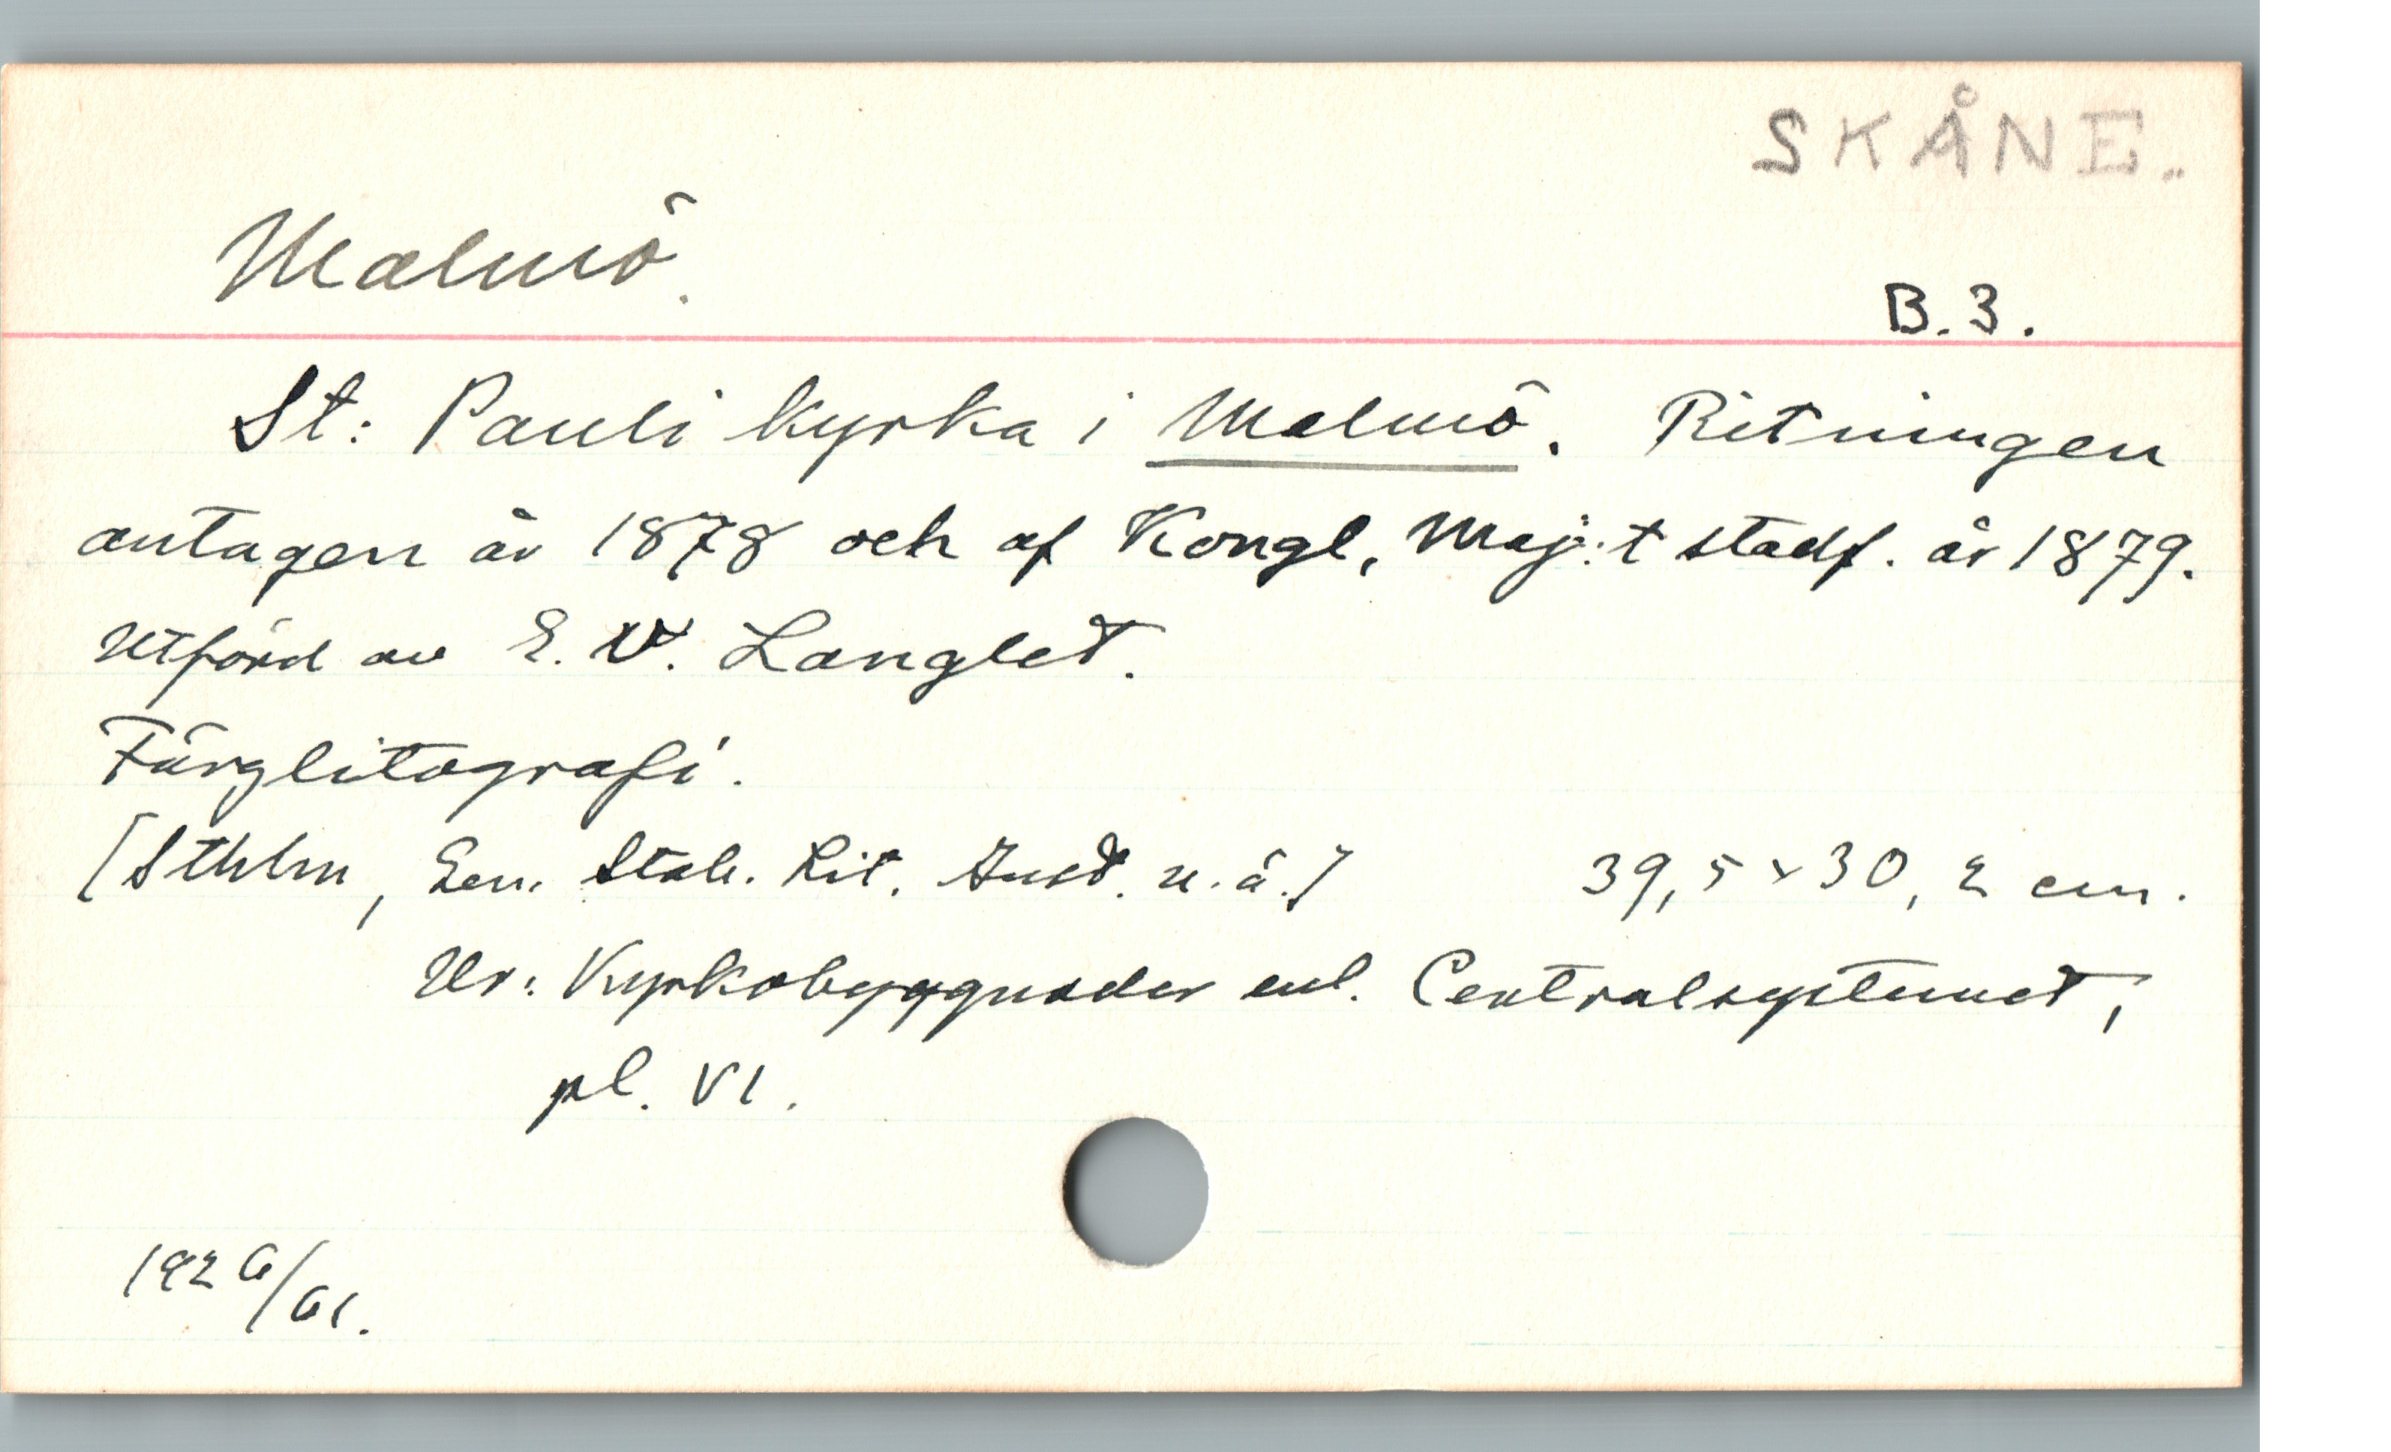 SKÅNE.
Malmö.
B.3.
St: Pauli kyrka i Malmö. Ritningen
antagen år 1878 och af Kongl, Maj:t stadf. år 1879.
Utförd av E. V. Langlet.
Färglitografi.
[Sthlm, Gen. Stab. Lit. Anst. u.å.] 39,5 x 30,2 cm.
Ur: Kyrkobyggnader enl. Centralsystemet,
pl. VI.
1926/61.